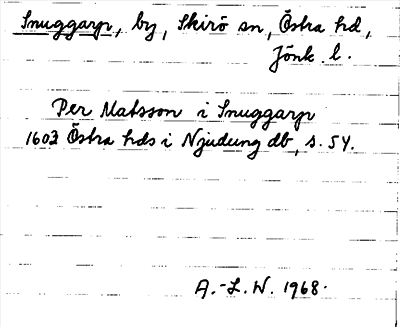 Snuggarp, by, Skirö sn, Östra hd,
Jönk. l.
Per Matsson i Snuggarp
1603 Östra hds i Njudung db, s. 54.
A.-L. W. 1968.